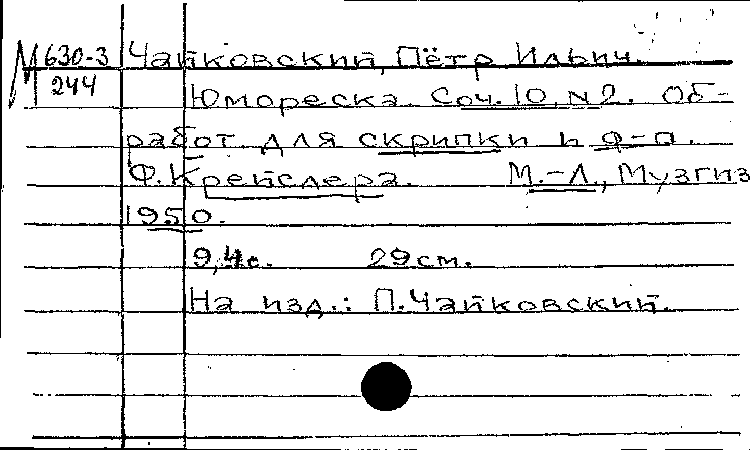 М 630-3 Чайковский, Пётр Ильич.
244 Юмореска. Соч. 10, №2. Об-
работ для скрипки и ф-п.
Ф. Крейслера. М.-Л., Музгиз
1950.
9,4с. 29см.
На изд.: П. Чайковский.